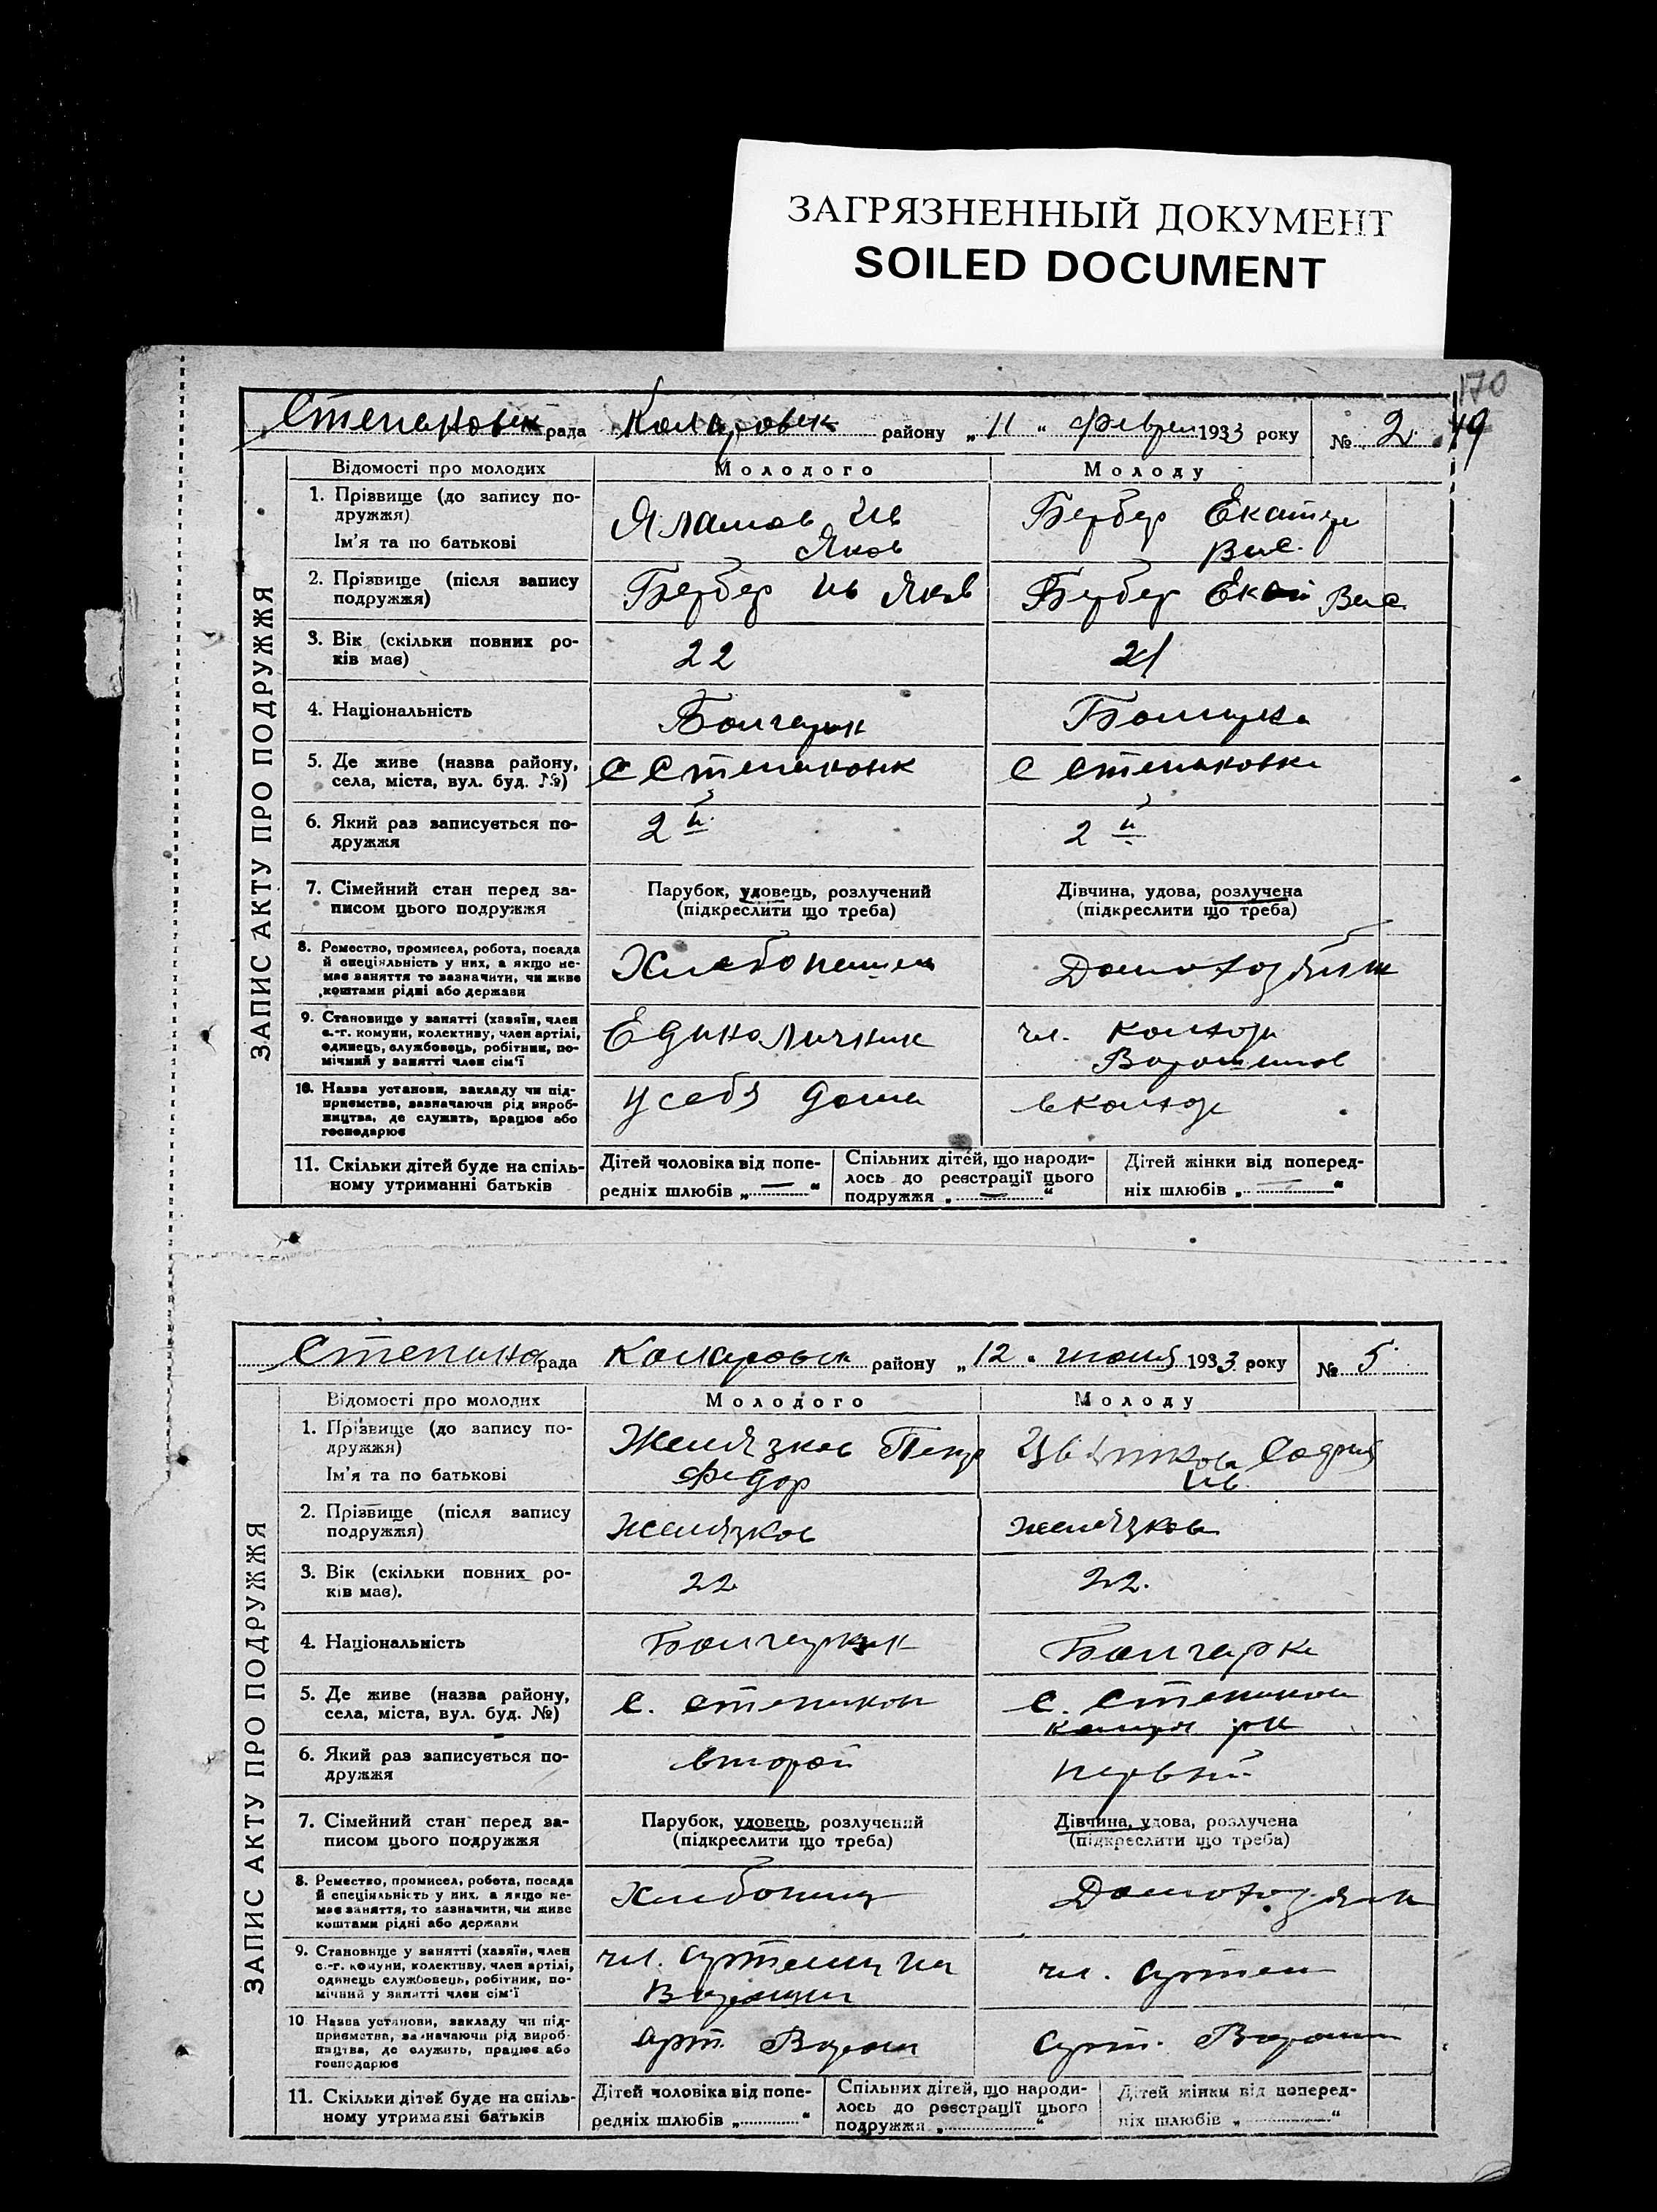 ЗАГРЯЗНЕННЫЙ ДОКУМЕНТ
SOILED DOCUMENT
170
49
Степановск рада Коларовск району „11“ Феврал 1933 року № 2
ЗАПИС АКТУ ПРО ПОДРУЖЖЯ
Відомості про молодих Молодого Молоду
1. Прізвище (до запису по-
дружжя)
Ім'я та по батькові
Яламов Ив
Яков
Бербер Екатер
Вас.
2. Прізвище (після запису
подружжя)
Бербер Ив Яков Бербер Екат Вас
3. Вік (скільки повних ро-
ків має)
22 21
4. Національність
Болгарин Болгарка
5. Де живе (назва району,
села, міста, вул. буд. №)
С Степановк С Степановка
6. Який раз записується по-
дружжя
2й 2й
7. Сімейний стан перед за-
писом цього подружжя
Парубок, удовець, розлучений
(підкреслити що треба)
Дівчина, удова, розлучена
(підкреслити що треба)
8. Ремество, промисел, робота, посада
й спеціяльність у них, а якщо не-
має заняття то зазначити, чи живе
коштами рідні або держави
Хлебопашец Домохозяйк
9. Становище у занятті (хазяїн, член
с.-г. комуни, колективу, член артілі,
одинець, службовець, робітник, по-
мічний у занятті член сім'ї
Единоличник чл. колхоза
Ворошилов
10. Назва установи, закладу чи під-
приємства, зазначаючи рід вироб-
ництва, де служить, працює або
господарює
у себя дома в колхозе
11. Скільки дітей буде на спіль-
ному утриманні батьків
Дітей чоловіка від попе-
редніх шлюбів „—“
Спільних дітей, що народи-
лось до реєстрації цього
подружжя „—“
Дітей жінки від поперед-
ніх шлюбів „—“
Степано рада Коларовск району „12“ июня 1933 року № 5
ЗАПИС АКТУ ПРО ПОДРУЖЖЯ
Відомості про молодих Молодого Молоду
1. Прізвище (до запису по-
дружжя)
Ім'я та по батькові
Желязков Петр
Федор
Цветкова
Ив.
2. Прізвище (після запису
подружжя)
Желязков Желязкова
3. Вік (скільки повних ро-
ків має).
22 22.
4. Національність
Болгарин Болгарка
5. Де живе (назва району,
села, міста, вул. буд. №)
с. Степанов с. Степанов
6. Який раз записується по-
дружжя
второй первый
7. Сімейний стан перед за-
писом цього подружжя
Парубок, удовець, розлучений
(підкреслити що треба)
Дівчина, удова, розлучена
(підкреслити що треба)
8. Ремество, промисел, робота, посада
й спеціяльність у них, а якщо не-
має заняття, то зазначити, чи живе
коштами рідні або держави
Хлебопаш Домохозяйк
9. Становище у занятті (хазяїн, член
с.-г. комуни, колективу, член артілі,
одинець службовець, робітник, по-
мічний у занятті член сім'ї
чл. артели
Ворошил
чл. артел
10 Назва установи, закладу чи під-
приємства, зазначаючи рід вироб-
ництва, де служить, працює або
господарює
арт. Ворош арт. Ворошил
11. Скільки дітей буде на спіль-
ному утриманні батьків
Дітей чоловіка від попе-
редніх шлюбів „ “
Спільних дітей, що народи-
лось до реєстрації цього
подружжя „ “
Дітей жінки від поперед-
ніх шлюбів „ “